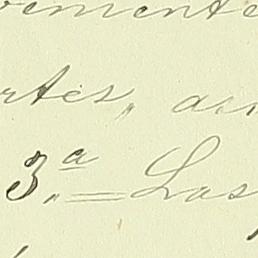 vemente
rtes, a
3.ª = Las